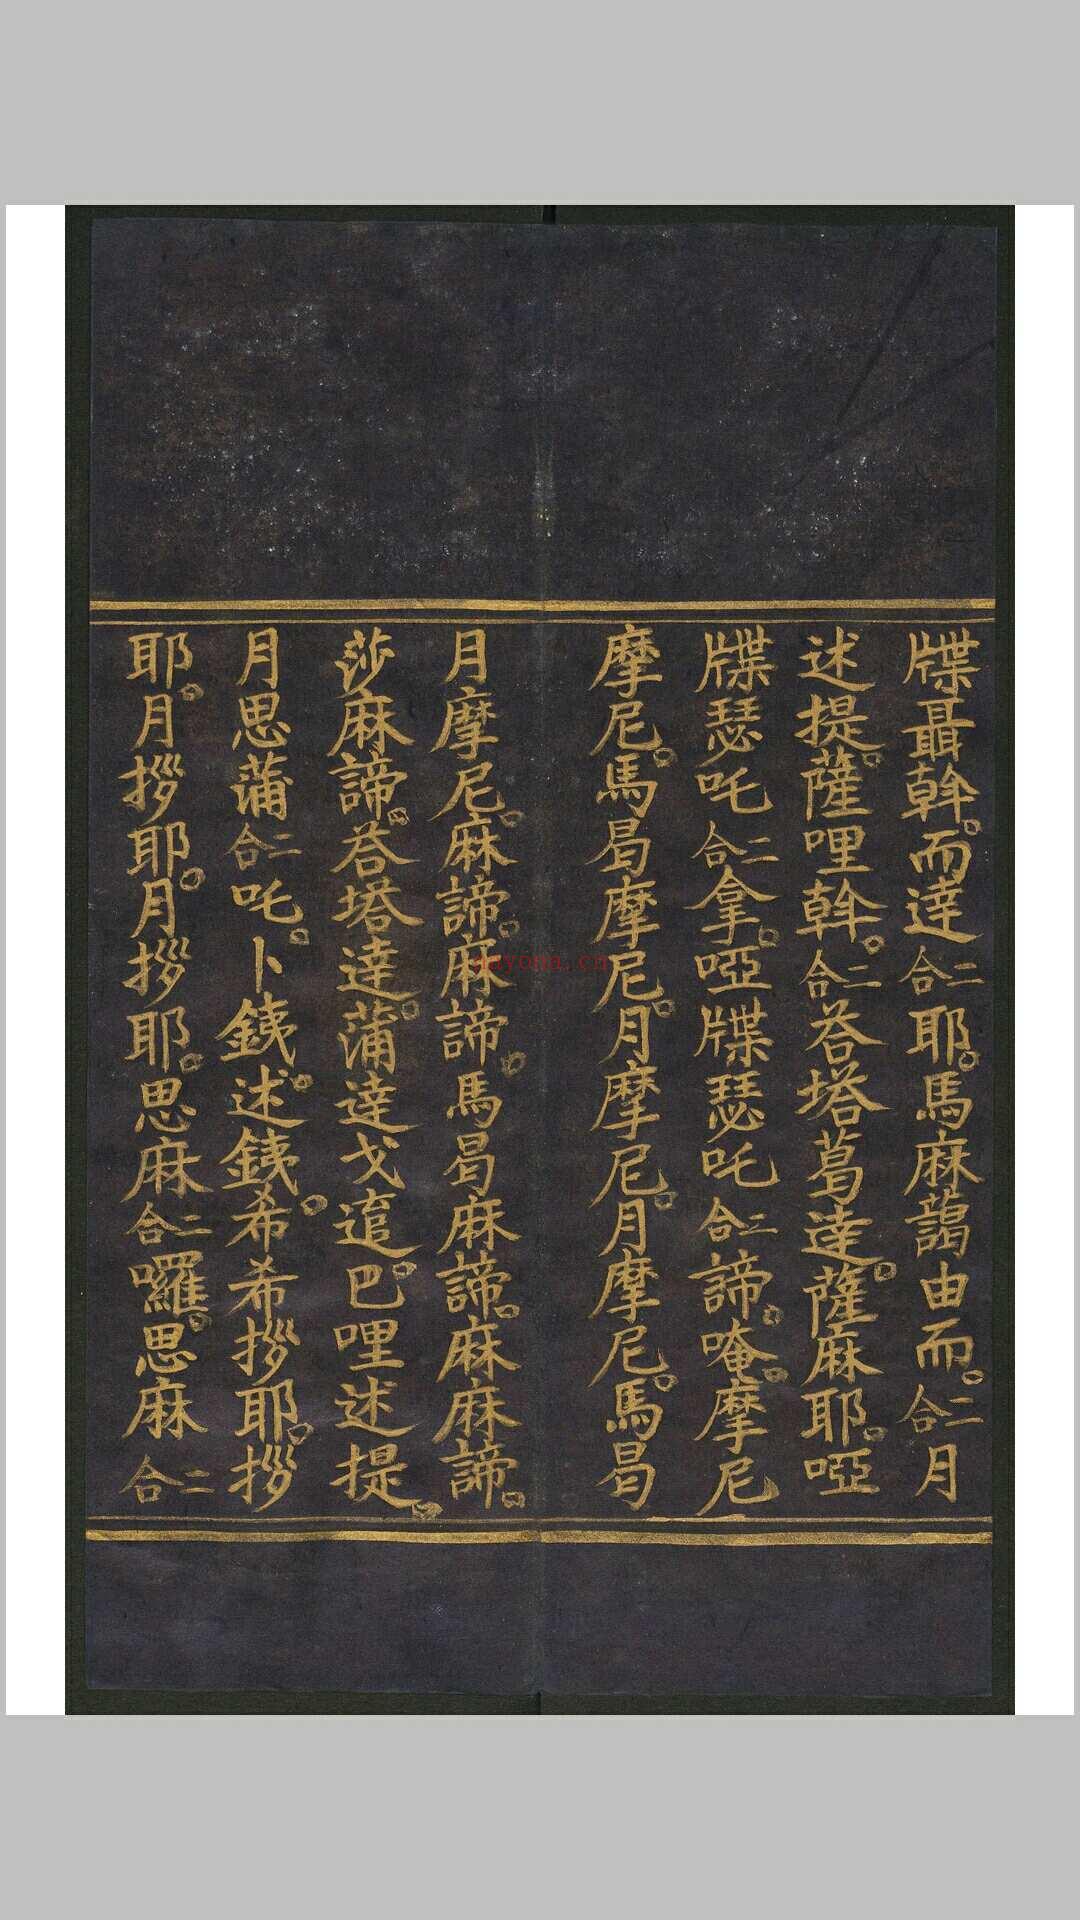 牒聶斡。而達二合耶。馬麻藹由而。二合月
述提。薩哩斡。二合荅塔葛達。薩麻耶。啞
牒瑟吒二合拿。啞牒瑟吒二合諦。唵。摩尼
摩尼。馬曷摩尼。月摩尼。月摩尼。馬曷
月摩尼。麻諦。麻諦。馬曷麻諦。麻麻諦。
莎麻諦。荅塔達。蒲達戈邅。巴哩述提。
月思蒲二合吒。卜銕。述銕。希希拶耶。拶
耶。月拶耶。月拶耶。思麻二合囉。思麻二合